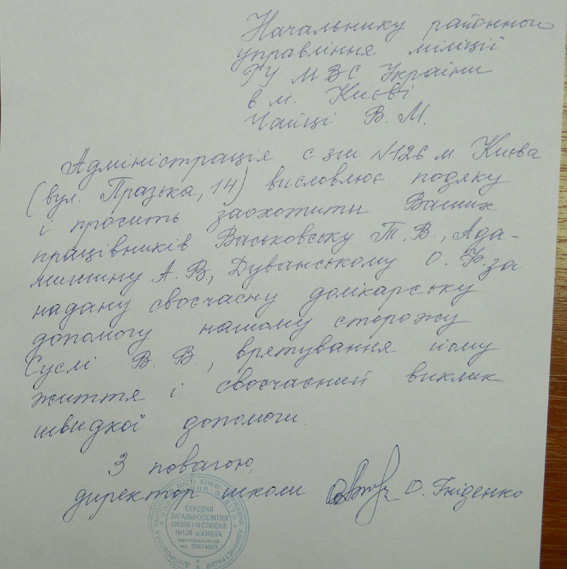 Начальнику районного
управління міліції
ГУ МВС України
в м. Києві
Чайці В. М.
Адміністрація сзш №126 м. Києва
(вул. Празька, 14) висловлює подяку
і просить заохотити Ваших
працівників Васьковську Т. В., Ада-
А. В., Дуванському О. Ф. за
надану своєчасну долікарську
допомогу нашому сторожу
Суслі В. В., врятування йому
життя і своєчасний виклик
швидкої допомоги.
З повагою,
директор школи О.
СЕРЕДНЯ
ЗАГАЛЬНООСВІТНЯ
ШКОЛА І-ІІІ СТУПЕНІВ
№126 м.КИЄВА